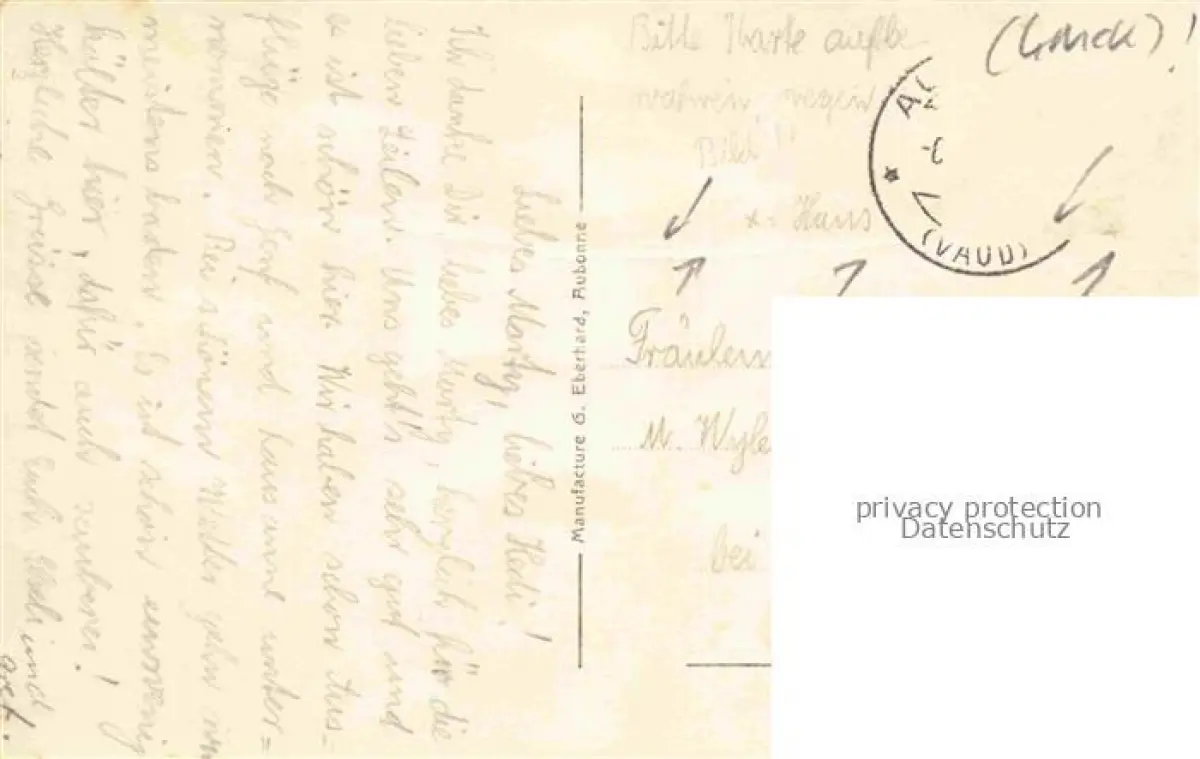 Liebes Marty, liebes Hedi!
Ich danke Dir, liebes Marty, herzlich für die
lieben Zeilen. Uns geht's sehr gut und
es ist schön hier. Wir haben schon Aus-
flüge nach Genf und Lausanne unter=
nommen. Bei schönem Wetter gehn wir
meistens baden. Es ist schön einwenig
kälter hier, daher auch sauberer!
Herzliche Grüsse sendet Euch Hedi und
Manufacture G. Eberhard, Aubonne
Bitte Karte aufbe-
wahren, wegen
Bild!!
x. Hans
(VAUD)
Fräulein
M. Wyle
bei
privacy protection
Datenschutz